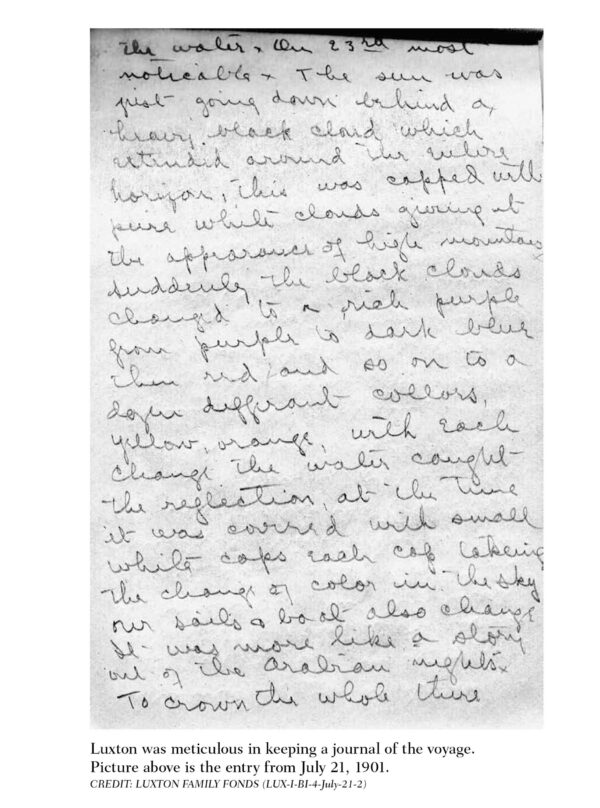 the water x On 23rd most
noticable x The sun was
just going down behind a
heavy black cloud which
extended around the entire
horizon, this was capped with
pure white clouds giving it
the appearance of high mountains
suddenly the black clouds
changed to a rich purple
from purple to dark blue
then red and so on to a
dozen diffirant collors,
yellow, orange, with each
change the water caught
the reflection, at the time
it was covred with small
white caps each cap takeing
the change of color in the sky
our sails & boat also change
It was more like a story
out of the Arabian nights x
To crown the whole there
Luxton was meticulous in keeping a journal of the voyage.
Picture above is the entry from July 21, 1901.
CREDIT: LUXTON FAMILY FONDS (LUX-I-BI-4-July-21-2)